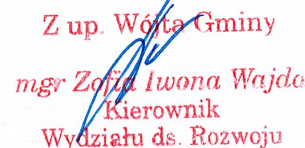 Z up. Wójta Gminy
mgr Zofia Iwona Wajda
Kierownik
Wydziału ds. Rozwoju